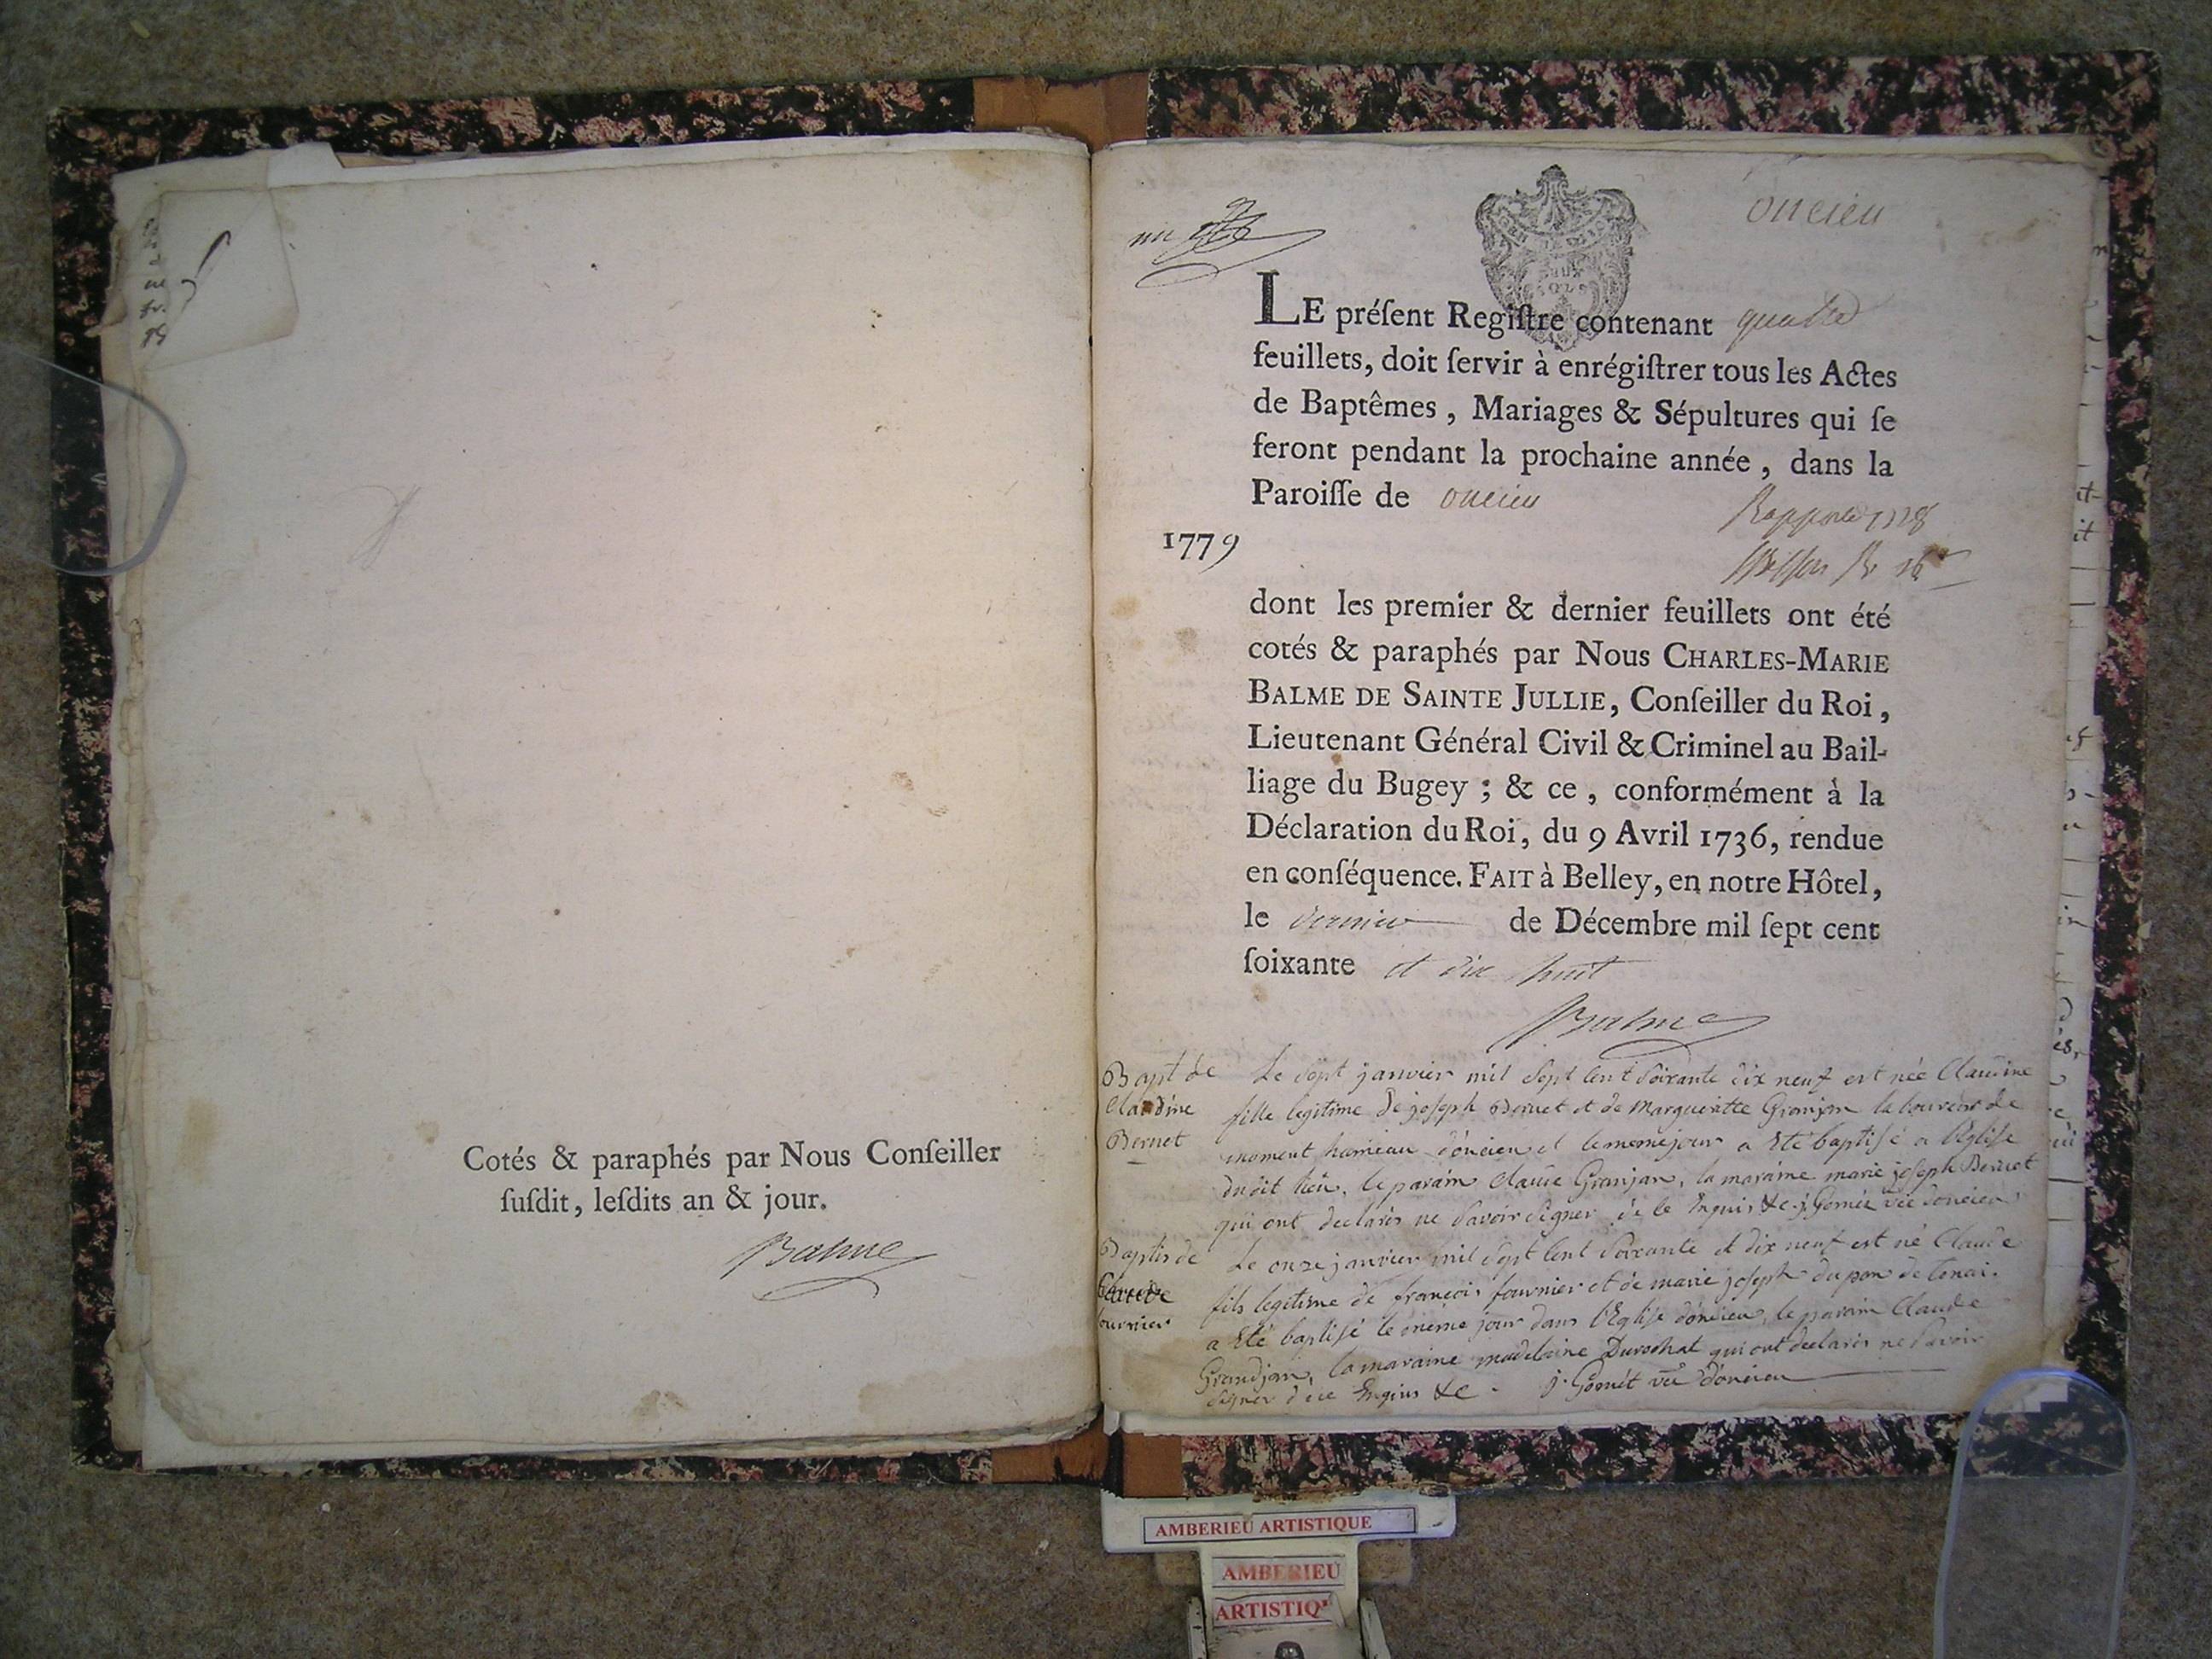 Cotés & paraphés par Nous Conſeiller
ſuſdit, leſdits an & jour.
Balme
un
oncieu
LE préſent Regiſtre contenant quatre
feuillets, doit ſervir à enrégiſtrer tous les Actes
de Baptêmes, Mariages & Sépultures qui ſe
feront pendant la prochaine année, dans la
Paroiſſe de oncieu
1779
dont les premier & dernier feuillets ont été
cotés & paraphés par Nous CHARLES-MARIE
BALME DE SAINTE JULLIE, Conſeiller du Roi,
Lieutenant Général Civil & Criminel au Bail-
liage du Bugey ; & ce, conformément à la
Déclaration du Roi, du 9 Avril 1736, rendue
en conſéquence. FAIT à Belley, en notre Hôtel,
le dernier de Décembre mil ſept cent
ſoixante et dix huit
Balme
Bapt de
Claudine
Bernet
Le sept janvier mil sept cent soixante dix neuf est née Claudine
fille legitime de joseph Bernet et de Margueritte Granjan laboureur de
hameau d'oncieu et le meme jour a eté baptisé a l'Eglise
dudit lieu, le parain claude Granjan, la maraine marie joseph Bernet
qui ont declarés ne savoir signer de ce Enquis &c. j. Gornét d'oncieu
Baptis de
Claude
fournier
Le onze janvier mil sept cent soixante et dix neuf est né Claude
fils legitime de francois fournier et de marie joseph dupon de
a eté baptisé le même jour dans l'Eglise d'oncieu, le parain Claude
Grandjan, la maraine madelaine Durochat qui ont declarés ne savoir
signer de ce Enquis &c. j. Gornét d'oncieu
AMBERIEU ARTISTIQUE
AMBERIEU
ARTISTIQ